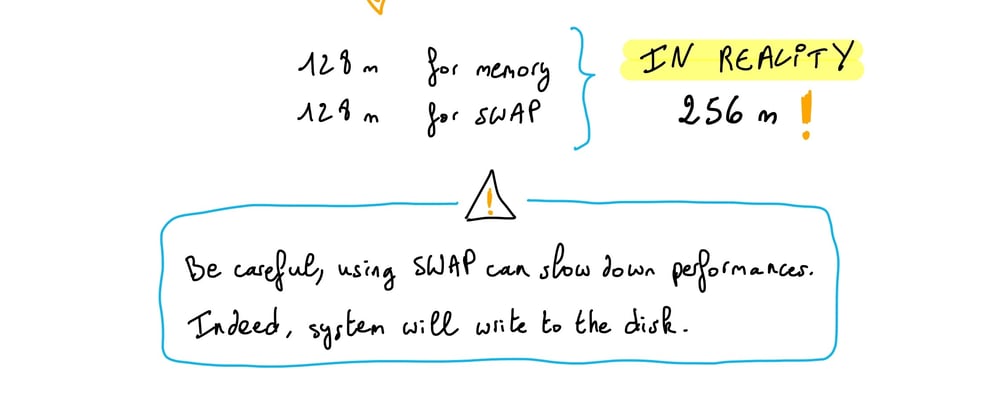 128 m for memory
128 m for SWAP
IN REALITY
256 m !
!
Be careful, using SWAP can slow down performances.
Indeed, system will write to the disk.